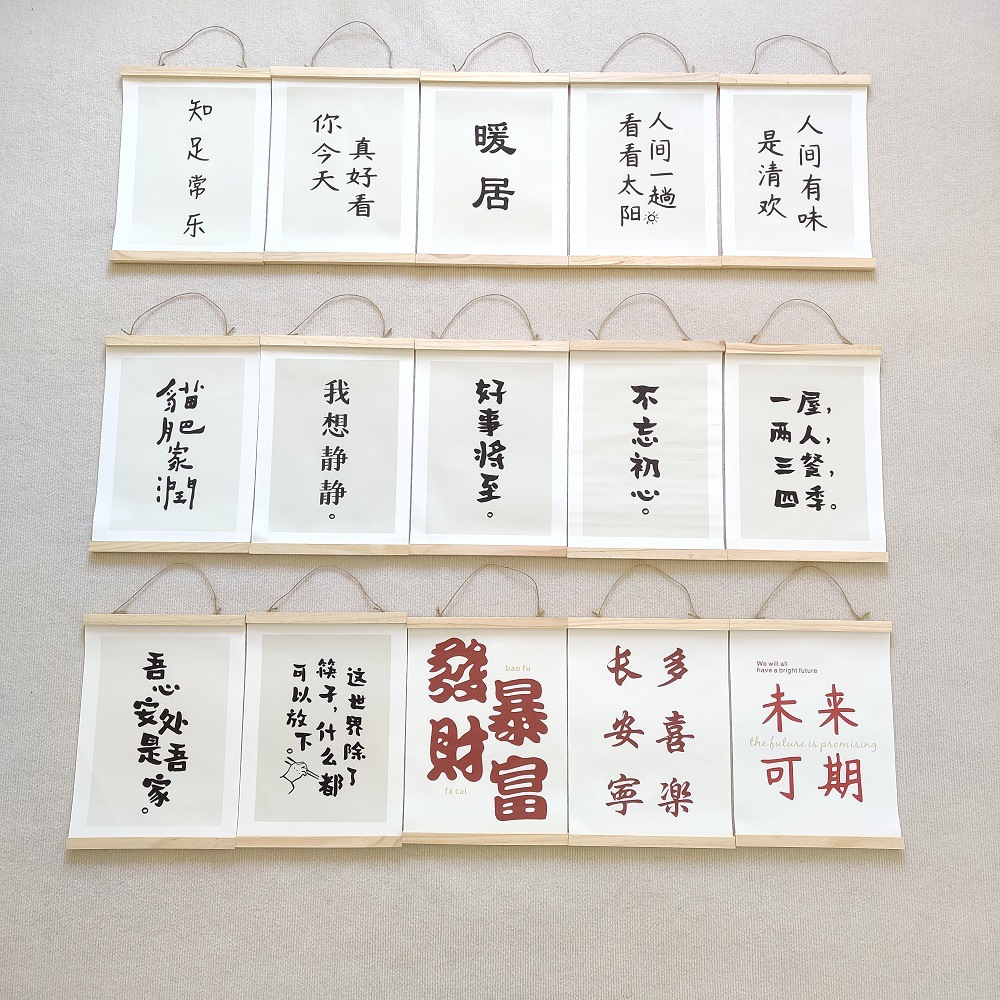 知足常乐
你今天
真好看
暖居
人间一趟
看看太阳
人间有味
是清欢
貓肥家潤
我想静静。
好事将至。
不忘初心。
一屋,
两人,
三餐,
四季。
吾心安处是吾家。
这世界除了
筷子,什么都
可以放下。
發財
bao fu
暴富
fa cai
多喜樂
长安寧
We will all
have a bright future
未来
the future is promising
可期